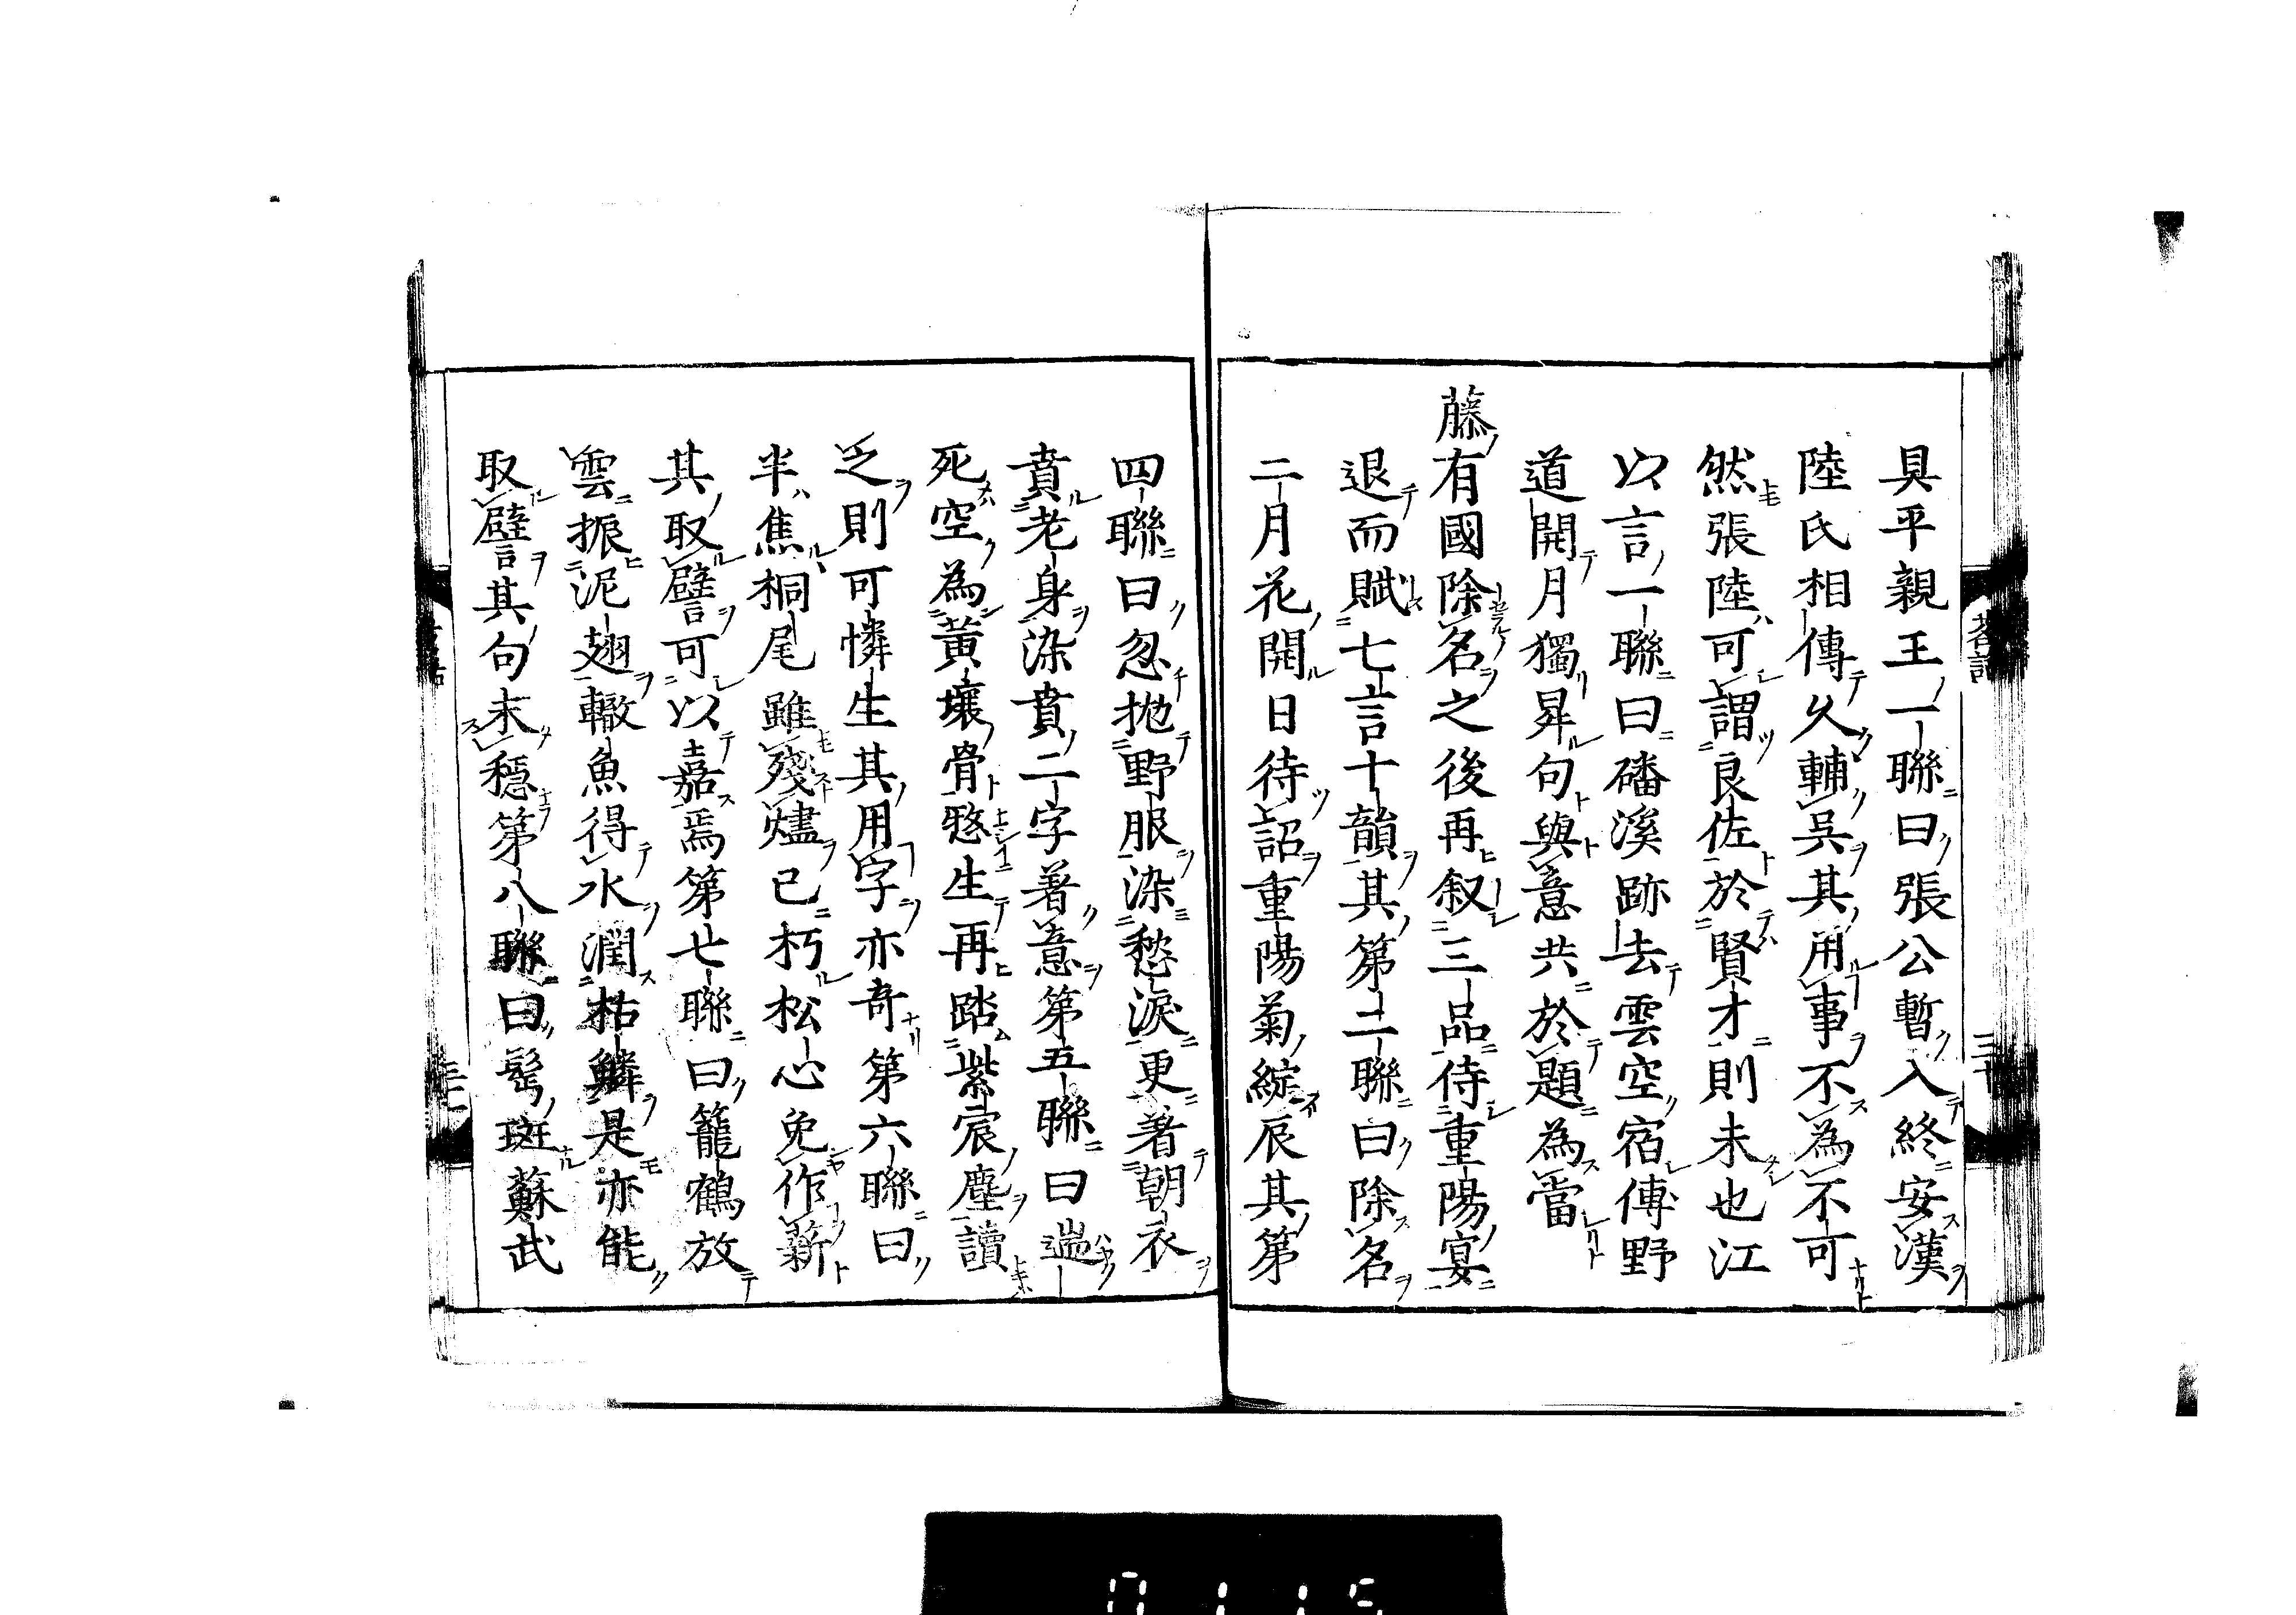 具平親王一聯曰張公暫入終安漢
陸氏相傳久輔吳其用事不為不可
然張陸可謂良佐於賢才則未也江
以言一聯曰磻溪跡去雲空宿傅野
道開月獨昇句與意共於題為當
藤有國除名之後再叙三品侍重陽宴
退而賦七言十韻其第二聯曰除名
二月花開日待詔重陽菊綻辰其第
四聯曰忽抛野服染愁淚更著朝衣
賁老身染賁二字著意第五聯曰遄
死空為黃壤骨憖生再踏紫宸塵讀
之則可憐生其用字亦奇第六聯曰
半焦桐尾雖殘燼已朽松心免作薪
其取譬可以嘉焉第七聯曰籠鶴放
雲振泥翅轍魚得水潤枯鱗是亦能
取譬其句未穩第八聯曰髩斑蘇武
茗話
三十
三十一
0115